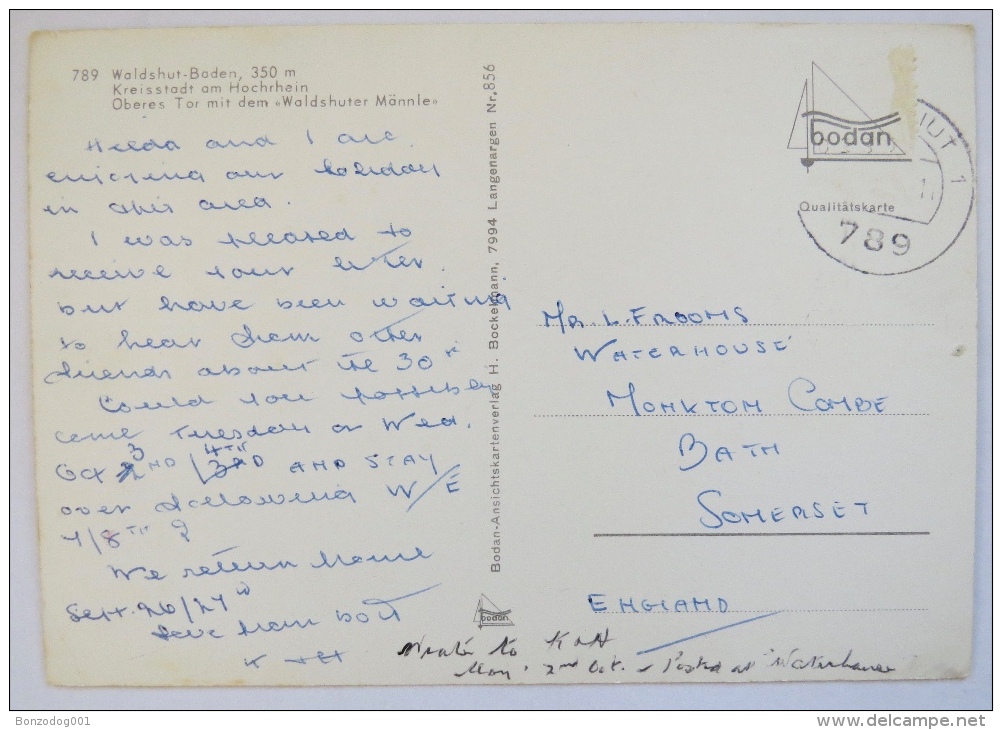 789 Waldshut-Baden, 350 m
Kreisstadt am Hochrhein
Oberes Tor mit dem «Waldshuter Männle»
Hilda and I are
enjoying our holiday
in this area.
I was pleased to
receive your letter.
but have been waiting
to hear from other
friends about the 30th
Could you possibly
come Tuesday or Wed.
Oct 3 ND / 4TH AND STAY
over following W/E
7/8TH ?
We return home
Sept. 26/27th
Love from both
K + H
Bodan-Ansichtskartenverlag H. Bockelmann, 7994 Langenargen Nr. 856
bodan
bodan
Qualitätskarte
HUT 1
789
MR. L. FROOMS
WATERHOUSE
MONKTON COMBE
BATH
SOMERSET
ENGLAND
Wrote to K + H
Mon. 2nd Oct. - Posted at "Waterhouse"
Bonzodog001
www.delcampe.net